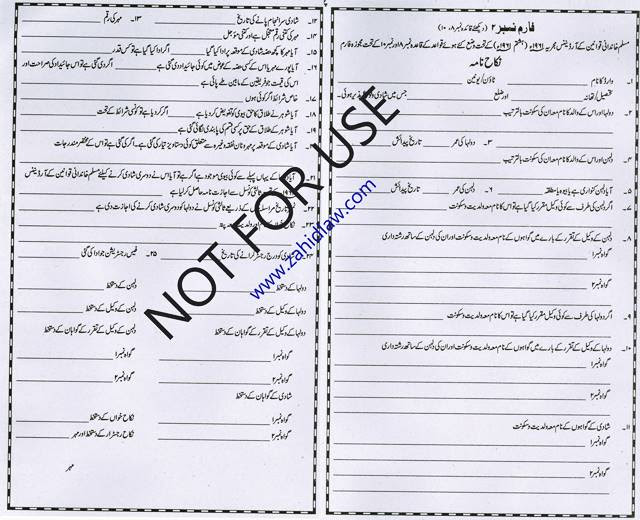 فارم نمبر ۲ (دیکھئے قاعدہ نمبر ۸، ۱۰)
مسلم خاندانی قوانین کے آرڈیننس مجریہ ۱۹۶۱ء (ہشتم ۱۹۶۱ء) کے تحت وضع کئے ہوئے قواعد کے قاعدہ نمبر ۸ اور نمبر ۱۰ کے تحت مجوزہ فارم
نکاح نامہ
۱۔ وارڈ کا نام ٹاؤن/یونین
تحصیل/تھانہ اور ضلع جس میں شادی وقوع پذیر ہوئی۔
۲۔ دولہا اور اس کے والد کا نام معہ ان کی سکونت بالترتیب
۳۔ دولہا کی عمر تاریخ پیدائش
۴۔ دلہن اور اس کے والد کا نام معہ ان کی سکونت بالترتیب
۵۔ آیا دلہن کنواری ہے یا بیوہ یا مطلقہ ۶۔ دلہن کی عمر تاریخ پیدائش
۷۔ اگر دلہن کی طرف سے کوئی وکیل مقرر کیا گیا ہے تو اس کا نام معہ ولدیت و سکونت
۸۔ دلہن کے وکیل کے تقرر کے بارے میں گواہوں کے نام معہ ولدیت و سکونت اور ان کی دلہن کے ساتھ رشتہ داری
گواہ نمبر ۱
گواہ نمبر ۲
۹۔ اگر دولہا کی طرف سے کوئی وکیل مقرر کیا گیا ہے تو اس کا نام معہ ولدیت و سکونت
۱۰۔ دولہا کے وکیل کے تقرر کے بارے میں گواہوں کے نام معہ ولدیت و سکونت اور ان کی دلہن کے ساتھ رشتہ داری
گواہ نمبر ۱
گواہ نمبر ۲
۱۱۔ شادی کے گواہوں کے نام معہ ولدیت و سکونت
گواہ نمبر ۱
گواہ نمبر ۲
۱۲۔ شادی سرانجام پانے کی تاریخ ۱۳۔ مہر کی رقم
۱۴۔ مہر کی کتنی رقم معجل ہے اور کتنی مؤجل
۱۵۔ آیا مہر کا کچھ حصہ شادی کے موقعہ پر ادا کیا گیا اگر ادا کیا گیا ہے تو کس قدر
۱۶۔ آیا پورے مہر یا اس کے کسی حصہ کے عوض میں کوئی جائیداد دی گئی ہے اگر دی گئی ہے تو اس جائیداد کی صراحت اور
اس کی قیمت جو فریقین کے مابین طے پائی ہے
۱۷۔ خاص شرائط اگر کوئی ہوں
۱۸۔ آیا شوہر نے طلاق کا حق بیوی کو تفویض کر دیا ہے اگر کر دیا ہے تو کونسی شرائط کے تحت
۱۹۔ آیا شوہر کے طلاق کے حق پر کسی قسم کی پابندی لگائی گئی ہے
آیا شادی کے موقعہ پر مہر و نان نفقہ وغیرہ سے متعلق کوئی دستاویز تیار کی گئی ہے۔ اگر کی گئی ہے تو اس کے مختصر مندرجات
۲۱۔ آیا دولہا کے یہاں پہلے سے کوئی بیوی موجود ہے اگر ہے تو آیا اس نے دوسری شادی کرنے کیلئے مسلم خاندانی قوانین کے آرڈیننس
ثالثی کونسل سے اجازت نامہ حاصل کر لیا ہے
۲۲۔ کے ذریعے ثالثی کونسل نے دولہا کو دوسری شادی کرنے کی اجازت دی ہے
شادی کو درج رجسٹر کرانے کی تاریخ ۲۵۔ فیس رجسٹریشن جو ادا کی گئی
دولہا کے دستخط
دلہن کے دستخط
دولہا کے وکیل کے دستخط
دلہن کے وکیل کے دستخط
دولہا کے وکیل کے تقرر کے گواہان کے دستخط
دلہن کے وکیل کے تقرر کے گواہان کے دستخط
گواہ نمبر ۱
گواہ نمبر ۱
گواہ نمبر ۲
گواہ نمبر ۲
شادی کے گواہان کے دستخط
گواہ نمبر ۱
نکاح خواں کے دستخط
گواہ نمبر ۲
نکاح رجسٹرار کے دستخط اور مہر
مہر
NOT FOR USE
www.zahidlaw.com